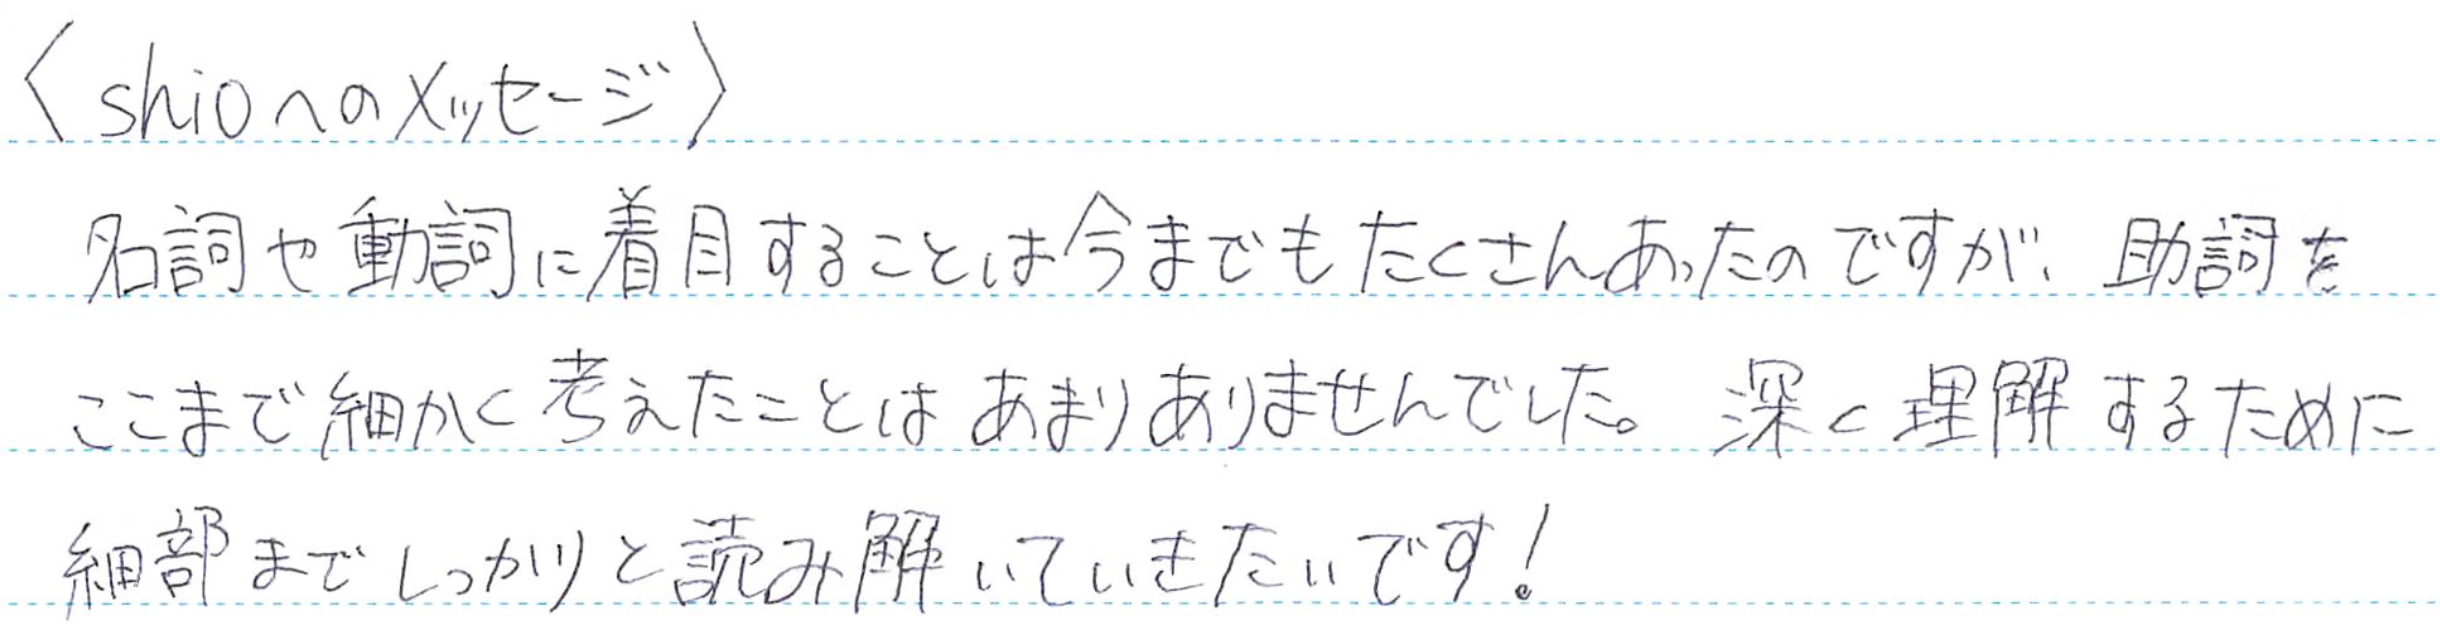 〈shioへのメッセージ〉
名詞や動詞に着目することは今までもたくさんあったのですが、助詞を
ここまで細かく考えたことはあまりありませんでした。深く理解するために
細部までしっかりと読み解いていきたいです！